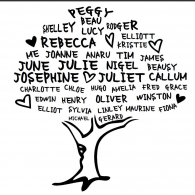 PEGGY
BEAU
SHELLEY LUCY RODGER
REBECCA ELLIOTT
KRISTIE
ME JOANNE ANARU TIM JAMES
JUNE JULIE NIGEL BEAUSY
JOSEPHINE JULIET CALLUM
CHARLOTTE CHLOE HUGO AMELIA FRED GRACE
EDWIN HENRY OLIVER WINSTON
ELLIOTT SYLVIA LINLEY MAURINE FIONA
MICHAEL GERARD